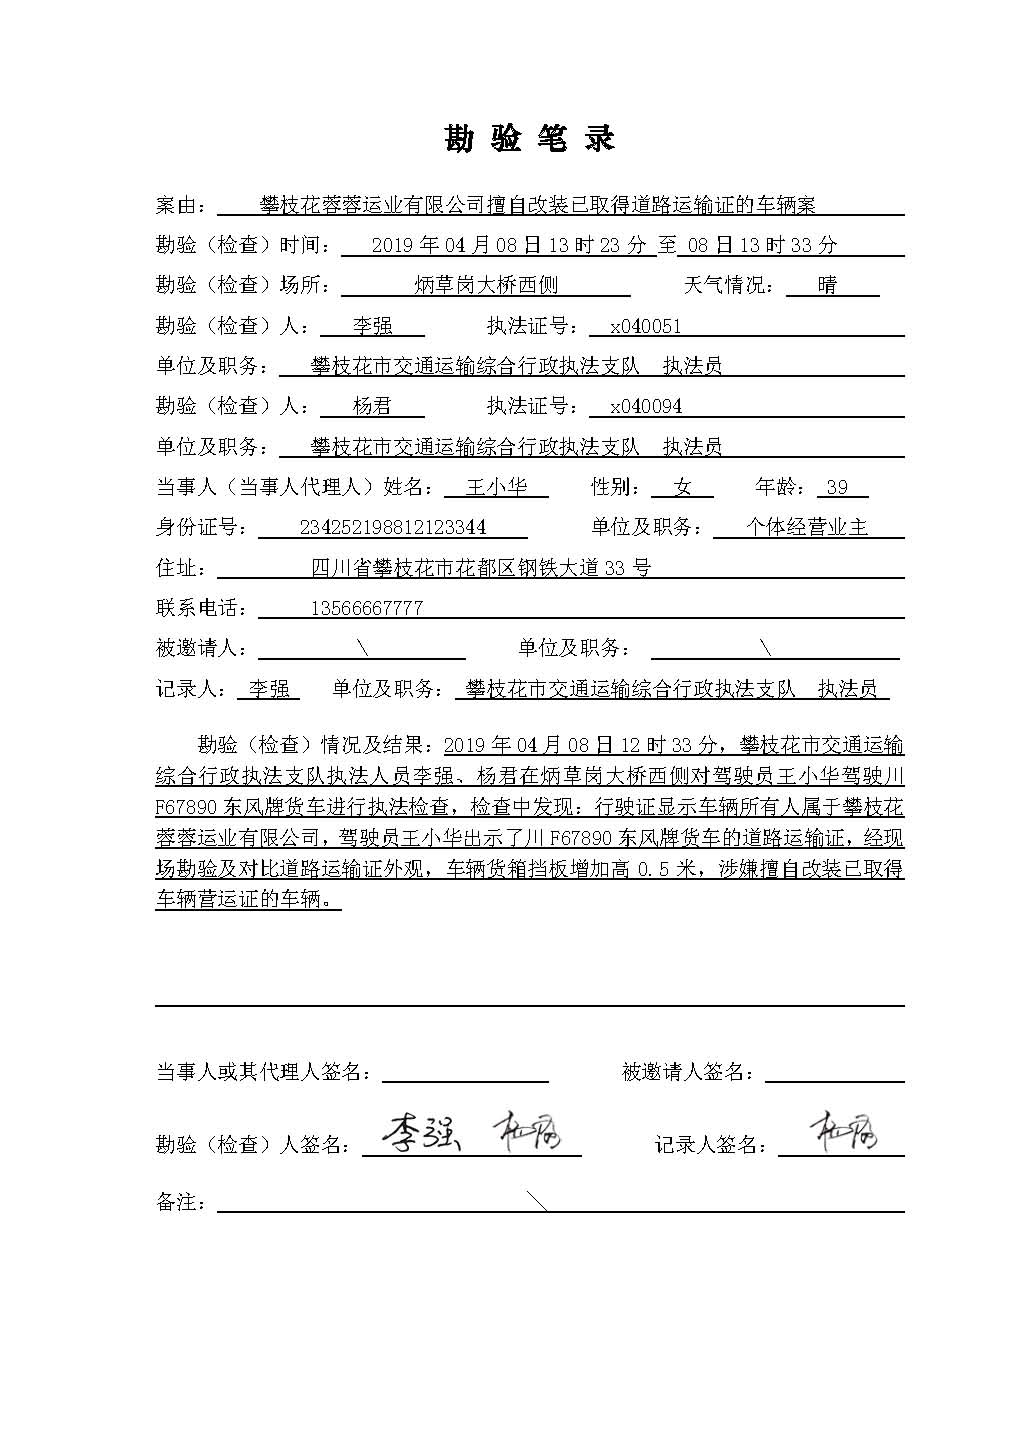 勘 验 笔 录
案由： 攀枝花蓉蓉运业有限公司擅自改装已取得道路运输证的车辆案
勘验（检查）时间： 2019 年 04 月 08 日 13 时 23 分 至 08 日 13 时 33 分
勘验（检查）场所： 炳草岗大桥西侧 天气情况： 晴
勘验（检查）人： 李强 执法证号： x040051
单位及职务： 攀枝花市交通运输综合行政执法支队 执法员
勘验（检查）人： 杨君 执法证号： x040094
单位及职务： 攀枝花市交通运输综合行政执法支队 执法员
当事人（当事人代理人）姓名： 王小华 性别： 女 年龄： 39
身份证号： 234252198812123344 单位及职务： 个体经营业主
住址： 四川省攀枝花市花都区钢铁大道 33 号
联系电话： 13566667777
被邀请人： \ 单位及职务： \
记录人： 李强 单位及职务： 攀枝花市交通运输综合行政执法支队 执法员
勘验（检查）情况及结果：2019 年 04 月 08 日 12 时 33 分，攀枝花市交通运输
综合行政执法支队执法人员李强、杨君在炳草岗大桥西侧对驾驶员王小华驾驶川
F67890 东风牌货车进行执法检查，检查中发现：行驶证显示车辆所有人属于攀枝花
蓉蓉运业有限公司，驾驶员王小华出示了川 F67890 东风牌货车的道路运输证，经现
场勘验及对比道路运输证外观，车辆货箱挡板增加高 0.5 米，涉嫌擅自改装已取得
车辆营运证的车辆。
当事人或其代理人签名： 被邀请人签名：
勘验（检查）人签名： 李强 记录人签名：
备注： \